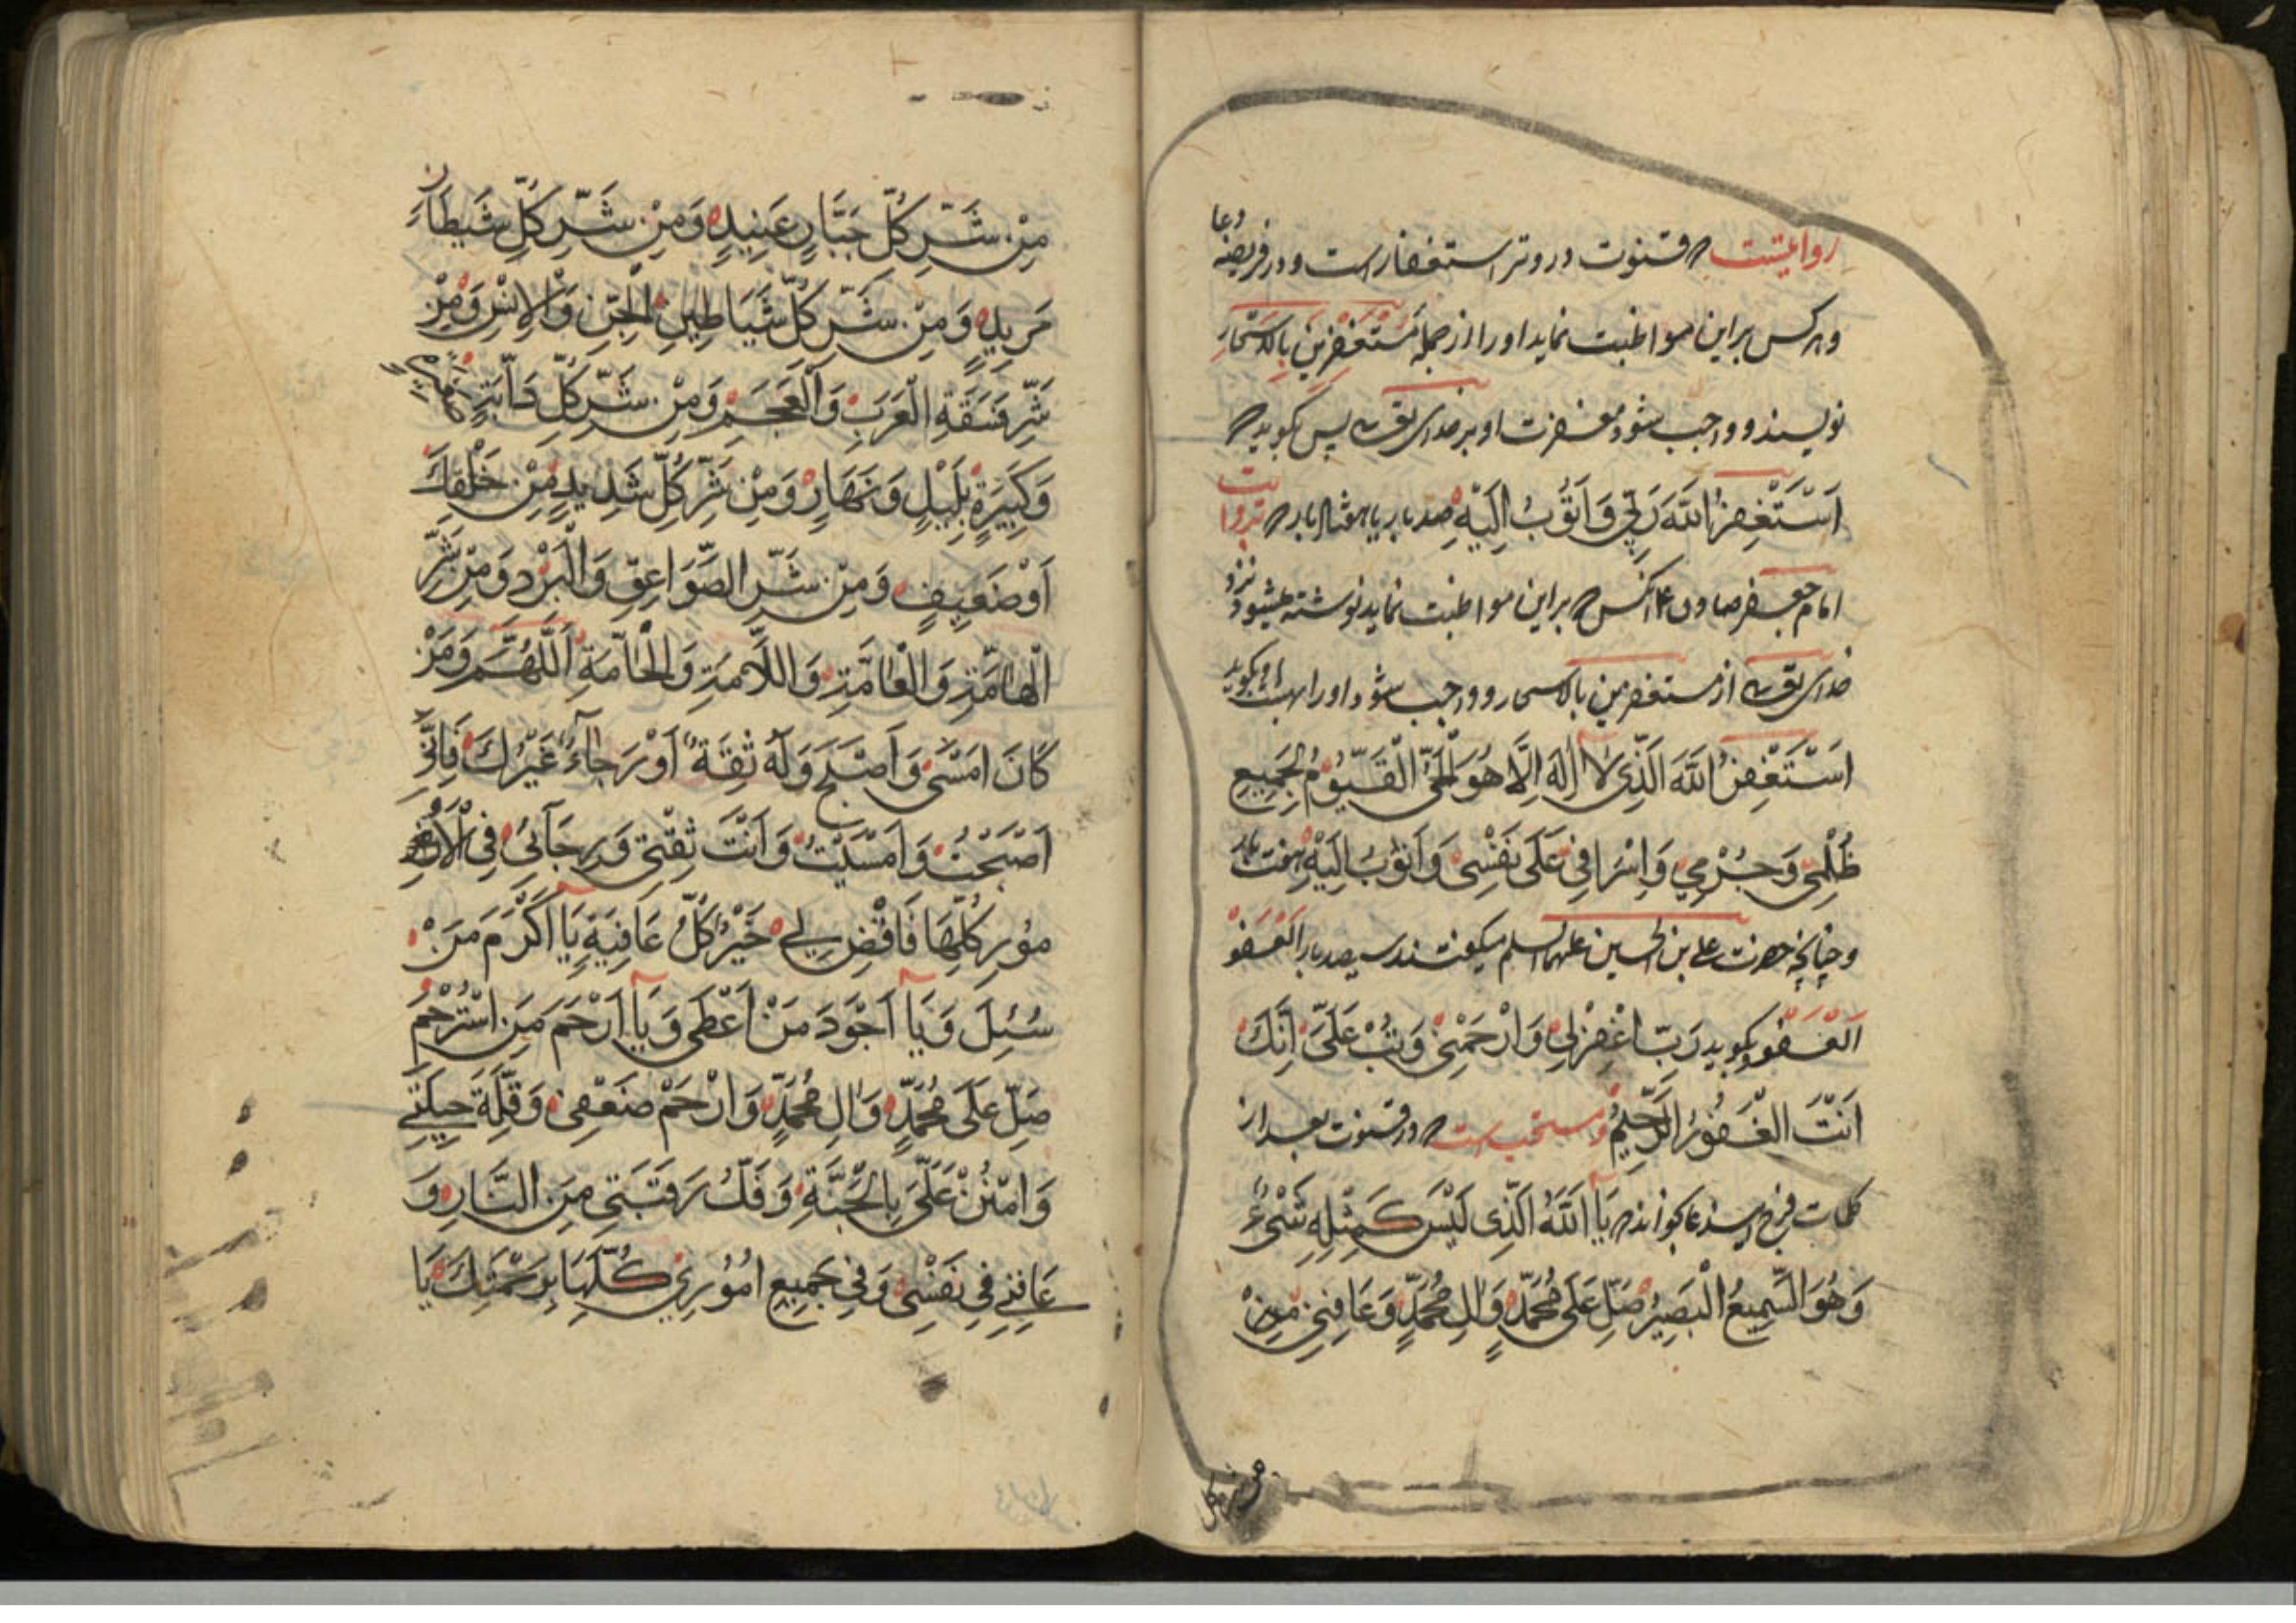 روایتست که قنوت در وتر استغفار است و در فریضه دعا
و هر کس براین مواظبت نماید اورا از جمله مُسْتَغْفِرینَ بِالْاَسْحارِ
نویسند و واجب شود مغفرت او بر خدای تعالی پس بگوید که
اَسْتَغْفِرُ اللّٰهَ رَبّی وَ اَتُوبُ اِلَیْهِ صد بار یا هفتاد بار که بروایت
امام جعفر صادق ع هر آنکس که براین مواظبت نماید نوشته میشود نزد
خدای تعالی از مستغفرین بالاسحار و واجب شود اورا بهشت و بگوید
اَسْتَغْفِرُ اللّٰهَ الَّذی لٰا اِلٰهَ اِلَّا هُوَ الْحَیُّ الْقَیُّومُ لِجَمیعِ
ظُلْمی وَ جُرْمی وَ اِسْرافی عَلٰی نَفْسی وَ اَتُوبُ اِلَیْهِ هفت بار
و چنانچه حضرت علی بن الحسین علیهما السلم میکفتند سیصد بار اَلْعَفْوَ
اَلْعَفْوَ و بکوید رَبِّ اغْفِرْلی وَ ارْحَمْنی وَ تُبْ عَلَیَّ اِنَّكَ
اَنْتَ الْغَفُورُ الرَّحیمُ و مستحب است که در قنوت بعد از
کلمات فرج این دعا بخواند که یٰا اَللّٰهُ الَّذی لَیْسَ کَمِثْلِهِ شَیْءٌ
وَ هُوَ السَّمیعُ الْبَصیرُ صَلِّ عَلٰی مُحَمَّدٍ وَ اٰلِ مُحَمَّدٍ وَ عٰافِنی مِنْ
من شر کل
مِنْ شَرِّ کُلِّ جَبَّارٍ عَنیدٍ وَ مِنْ شَرِّ کُلِّ شَیْطٰانٍ
مَریدٍ وَ مِنْ شَرِّ کُلِّ شَیٰاطینِ الْجِنِّ وَ الْاِنْسِ وَ مِنْ
شَرِّ فَسَقَةِ الْعَرَبِ وَ الْعَجَمِ وَ مِنْ شَرِّ کُلِّ دٰابَّةٍ صَغیرَةٍ
وَ کَبیرَةٍ بِلَیْلٍ وَ نَهٰارٍ وَ مِنْ شَرِّ کُلِّ شَدیدٍ مِنْ خَلْقِكَ
اَوْ ضَعیفٍ وَ مِنْ شَرِّ الصَّوٰاعِقِ وَ الْبَرْدِ وَ مِنْ شَرِّ
الْهٰامَّةِ وَ الْعٰامَّةِ وَ اللّٰامَّةِ وَ الْخٰاصَّةِ اَللّٰهُمَّ وَ مَنْ
کٰانَ اَمْسٰی وَ اَصْبَحَ وَ لَهُ ثِقَةٌ اَوْ رَجٰاءٌ غَیْرُكَ فَاِنّی
اَصْبَحْتُ وَ اَمْسَیْتُ وَ اَنْتَ ثِقَتی وَ رَجٰائی فِی الْاُ
مُورِ کُلِّهٰا فَاقْضِ لی خَیْرَ کُلِّ عٰافِیَةٍ یٰا اَکْرَمَ مَنْ
سُئِلَ وَ یٰا اَجْوَدَ مَنْ اَعْطٰی وَ یٰا اَرْحَمَ مَنِ اسْتُرْحِمَ
صَلِّ عَلٰی مُحَمَّدٍ وَ اٰلِ مُحَمَّدٍ وَ ارْحَمْ ضَعْفی وَ قِلَّةَ حیلَتی
وَ امْنُنْ عَلَیَّ بِالْجَنَّةِ وَ فَكَّ رَقَبَتی مِنَ النّٰارِ وَ
عٰافِنی فی نَفْسی وَ فی جَمیعِ اُمُوری کُلِّهٰا بِرَحْمَتِكَ یٰا